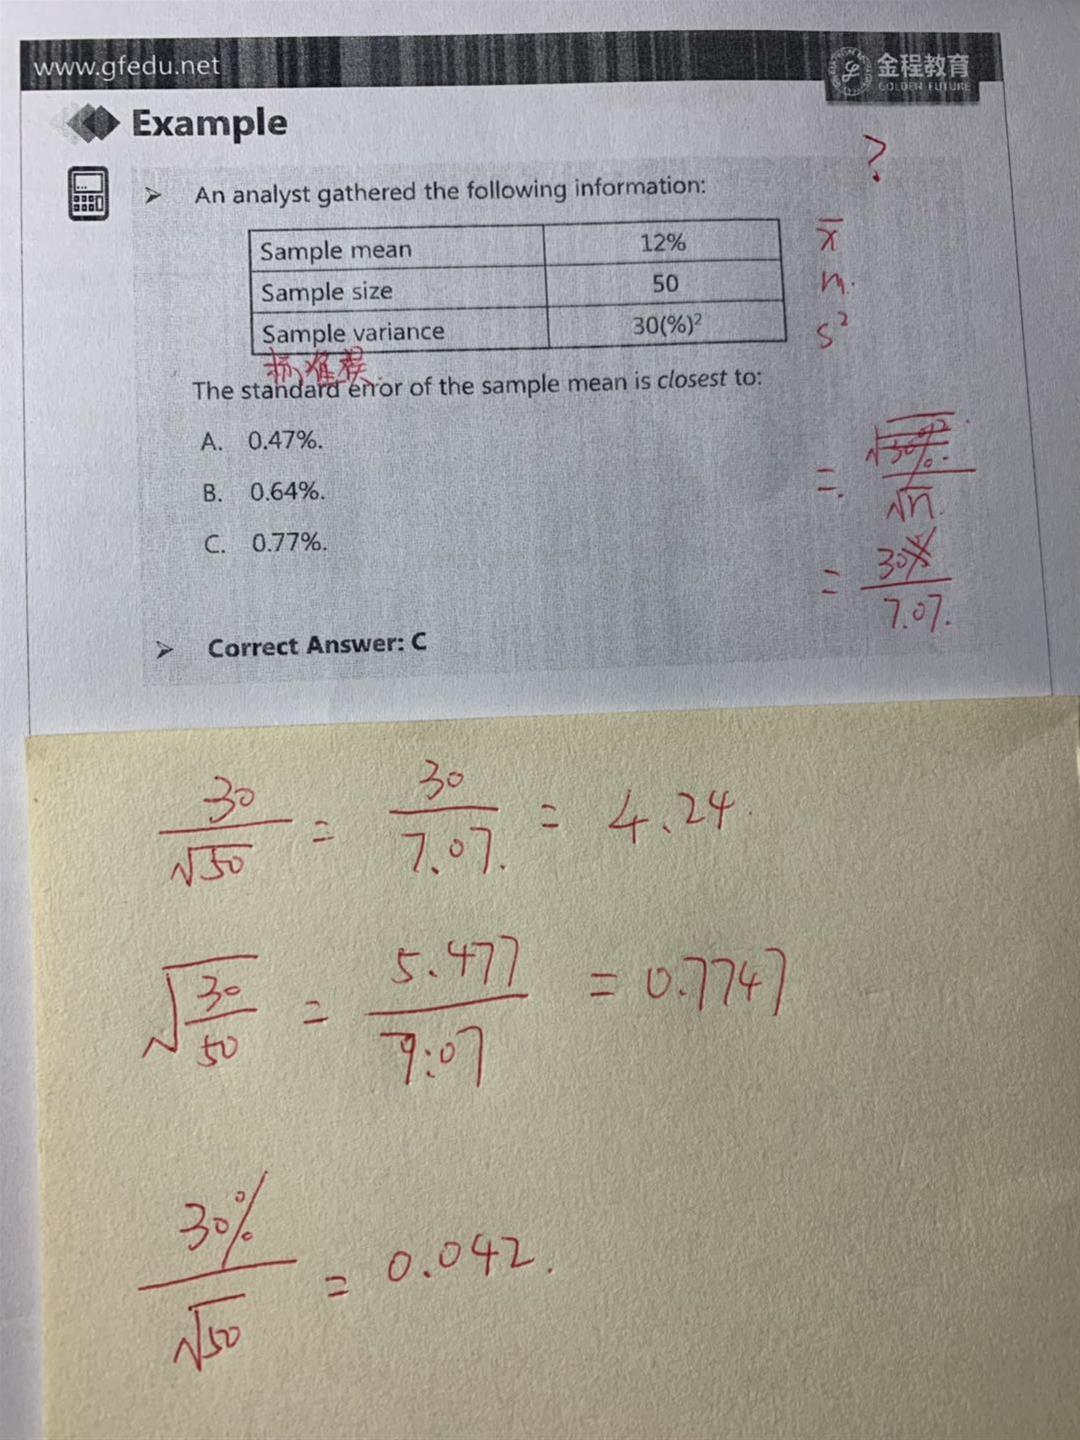 www.gfedu.net
金程教育
GOLDEN FUTURE
Example
?
An analyst gathered the following information:
Sample mean 12% x̄
Sample size 50 n.
Sample variance 30(%)² s²
标准误
The standard error of the sample mean is closest to:
A. 0.47%.
B. 0.64%.
C. 0.77%.
= √30%² / √n.
= 30% / 7.07.
Correct Answer: C
30/√50 = 30/7.07. = 4.24.
√(30/50) = 5.477/7.07 = 0.7747
30%/√50 = 0.042.